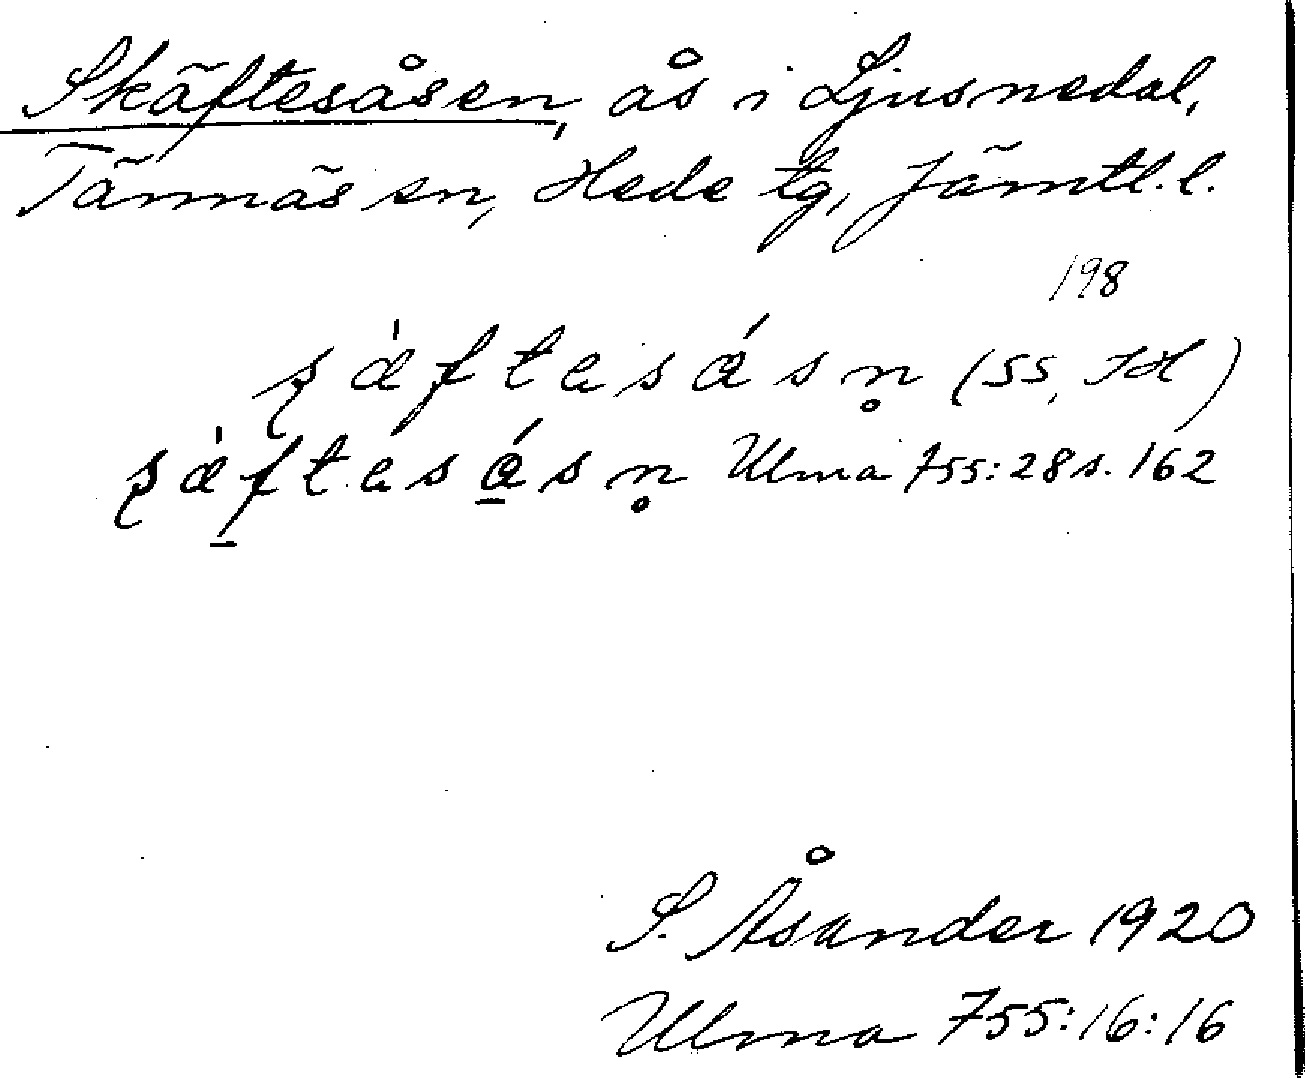 Skäftesåsen, ås i Ljusnedal,
Tännäs sn, Hede tg, Jämtl. l.
198
(SS, JH)
Ulma 755:28 s. 162
S. Åsander 1920
Ulma 755:16:16